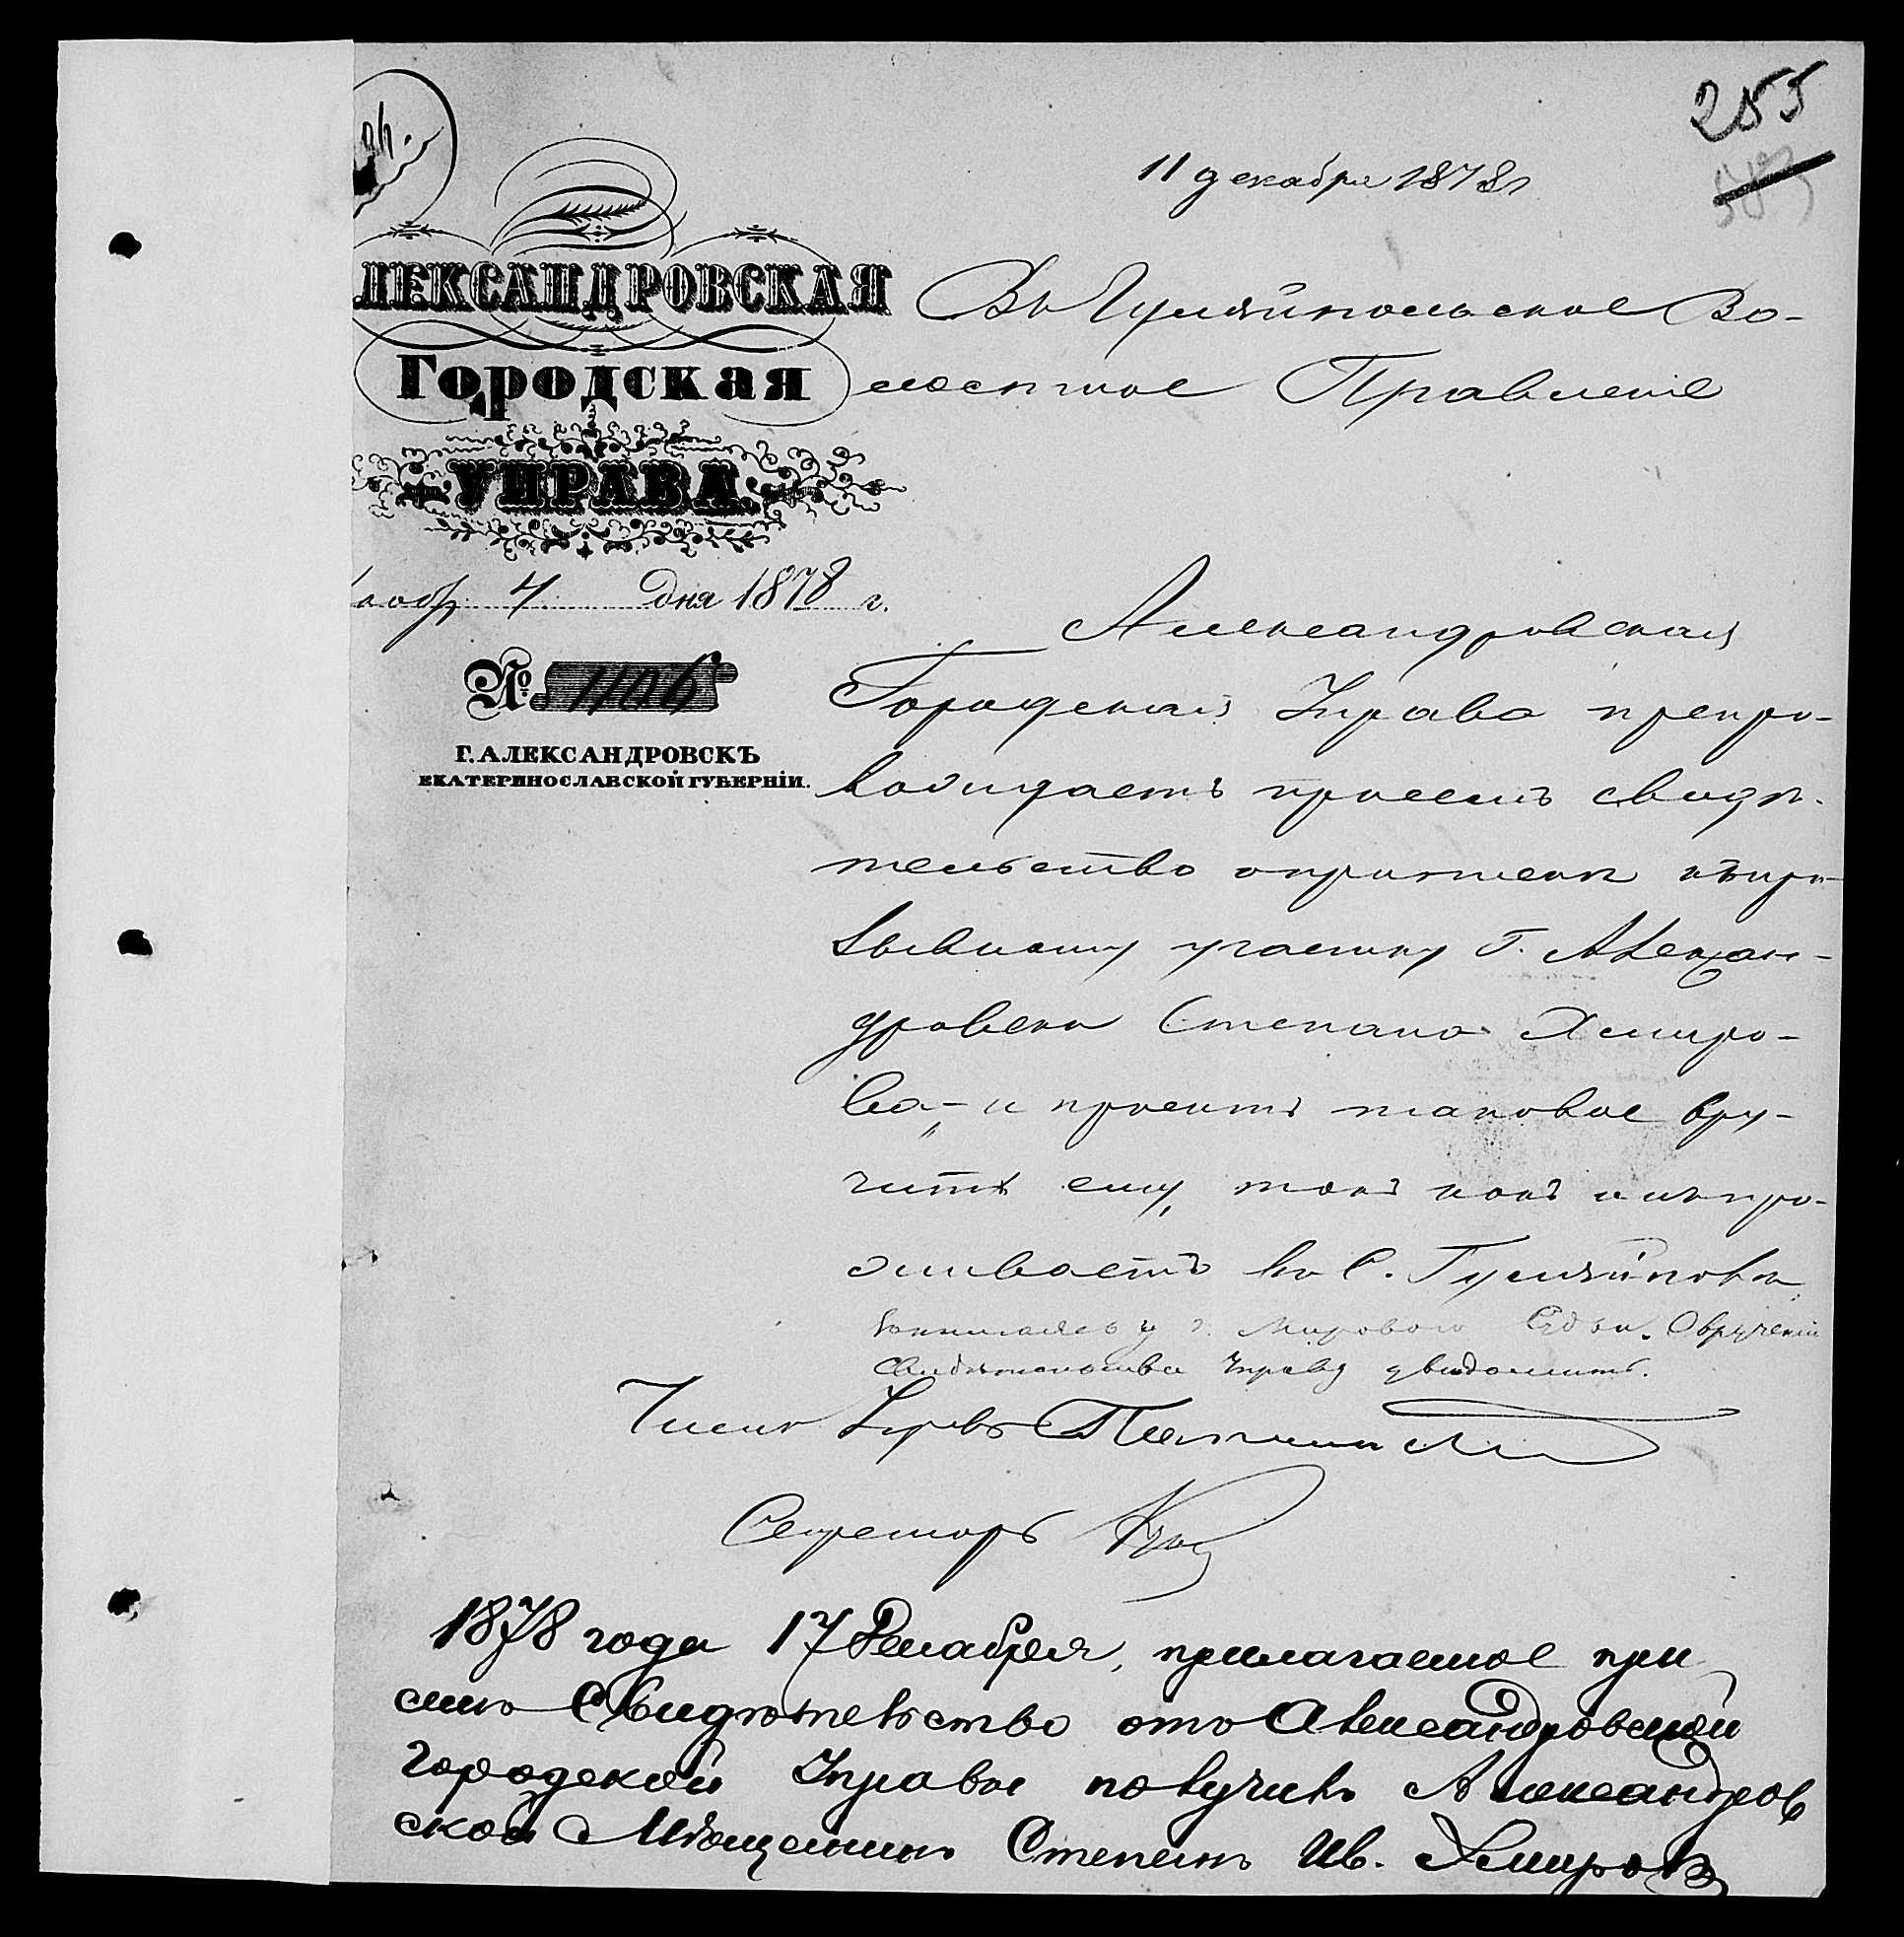 255
11 декабря 1878 г
ЛЕКСАНДРОВСКАЯ
Городская
УПРАВА
Ноябр. 4 Дня 1878 г.
№ 1106
Г. АЛЕКСАНДРОВСКЪ
ЕКАТЕРИНОСЛАВСКОЙ ГУБЕРНІИ.
Въ Гуляйпольское Во-
лостное Правленіе
Александровская
Городская Управа препро-
вождаетъ присемъ свидѣ-
тельство о припискѣ къ при-
зывному участку г. Алексан-
дровска Степана Хмиро-
ва, и проситъ таковое вру-
чить ему, такъ какъ и онъ про-
живаетъ въ С. Гуляйполѣ
у г. Мирового Судьи. О врученіи
свидѣтельства Управу увѣдомить.
Членъ Управы
Секретарь
1878 года 17 Декабря, прилагаемое при
семъ Свидѣтельство отъ Александровской
Городской Управы получилъ Александров
ской Мѣщанинъ Степанъ Ив. Хмировъ